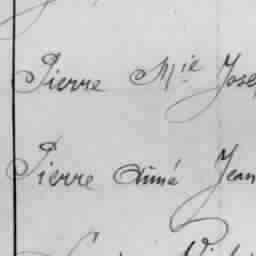 Pierre Mie Jose
Pierre Aimé Jean